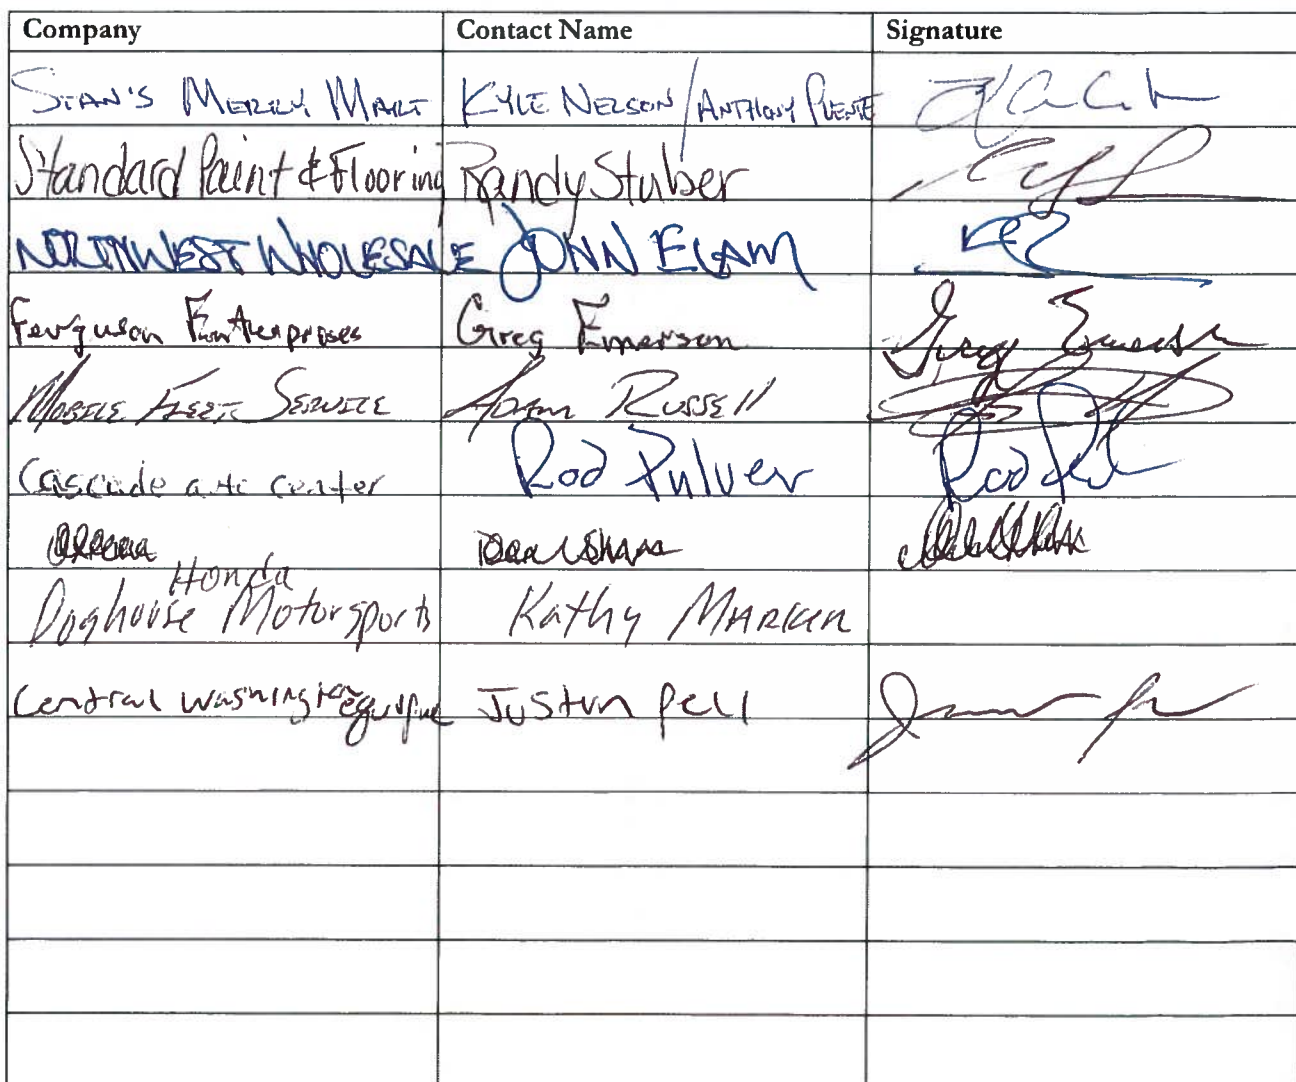 Company Contact Name Signature
STAN'S MERRY MART KYLE NELSON / ANTHONY
Standard Paint & Flooring Randy Stuber
NORTHWEST WHOLESALE JOHN ELAM
Ferguson Enterprises Greg Emerson Greg Emerson
MOBILE FLEET SERVICE Adam RUSSEll
Cascade auto center Rod Pulver Rod
Honda
Doghouse Motorsports Kathy MARKER
Central Washington equipme Justin pell